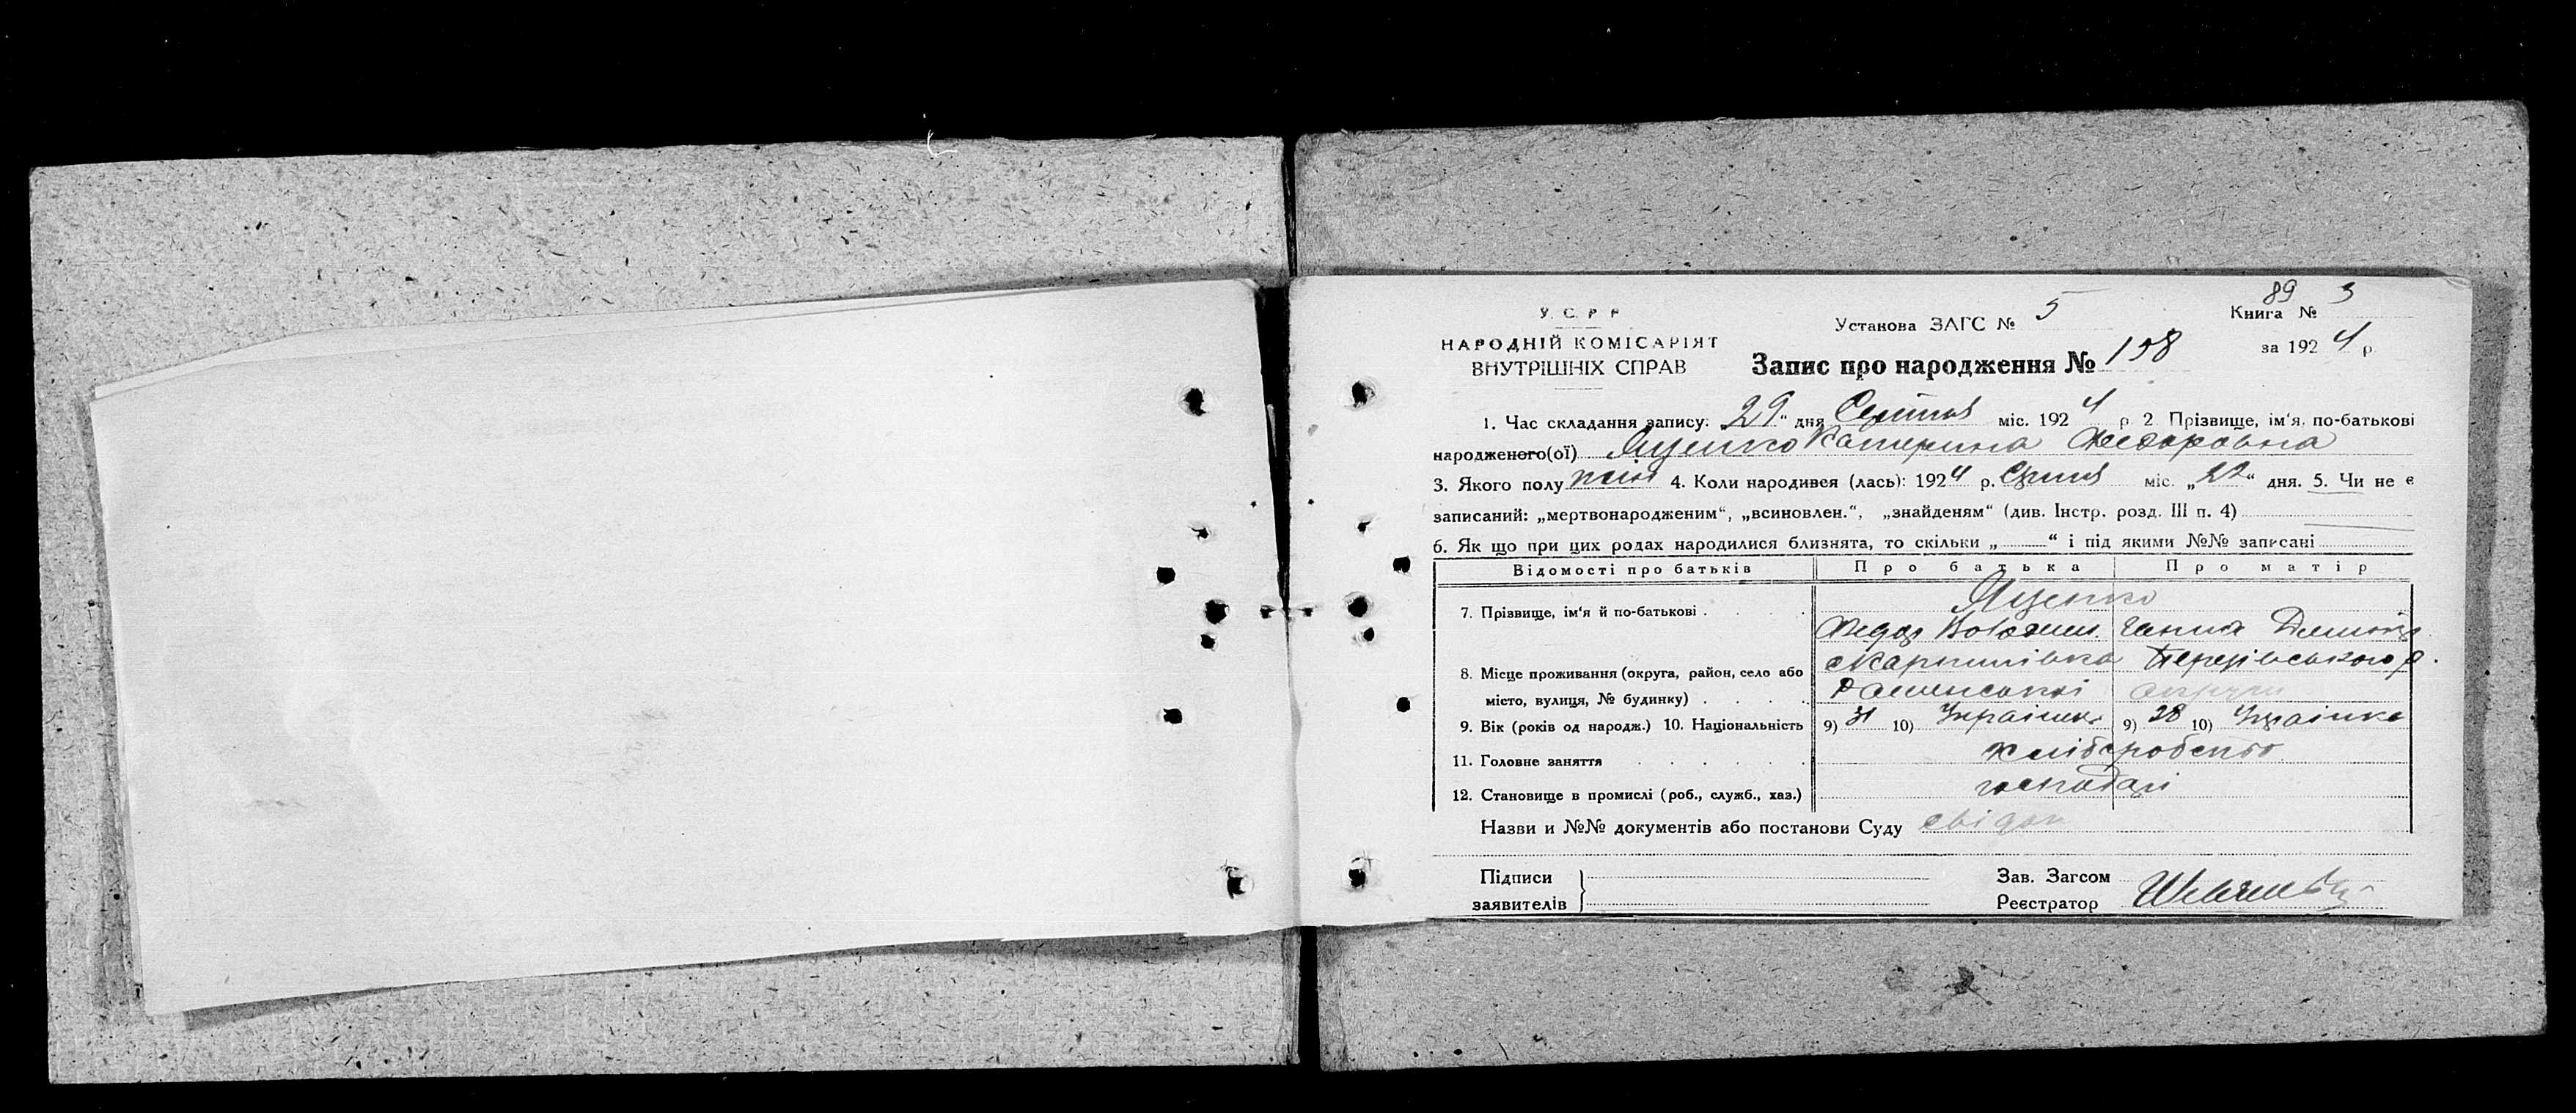 89
У. С. Р. Р.
Установа ЗАГС № 5
Книга № 3
НАРОДНІЙ КОМІСАРІЯТ
ВНУТРІШНІХ СПРАВ
Запис про народження № 158
за 1924 р.
1. Час складання запису: „29“ дня Серпня міс. 1924 р 2. Прізвище, ім‘я, по-батькові
народженого(ої) Яценко Катерина Федоровна
3. Якого полу жін 4. Коли народивея (лась): 1924 р. Серпня міс. „22“ дня. 5. Чи не є
записаний: „мертвонародженим“, „всиновлен.“, „знайденям“ (див. Інстр. розд. III п. 4)
6. Як що при цих родах народилися близнята, то скільки „ “ і під якими №№ записані
Відомості про батьків Про батька Про матір
7. Прізвище, ім‘я й по-батькові Яценко
Федор Ганна
8. Місце проживання (округа, район, село або
місто, вулиця, № будинку) Роменської округи
9. Вік (років од народж.) 10. Національність 9) 31 10) Українец 9) 28 10) Українка
11. Головне заняття хліборобство
12. Становище в промислі (роб., служб., хаз.) господарі
Назви и №№ документів або постанови Суду свідки
Підписи
заявителів
Зав. Загсом
Реєстратор